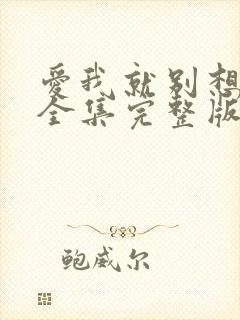 爱我就别想
全集完整版
鲍威尔